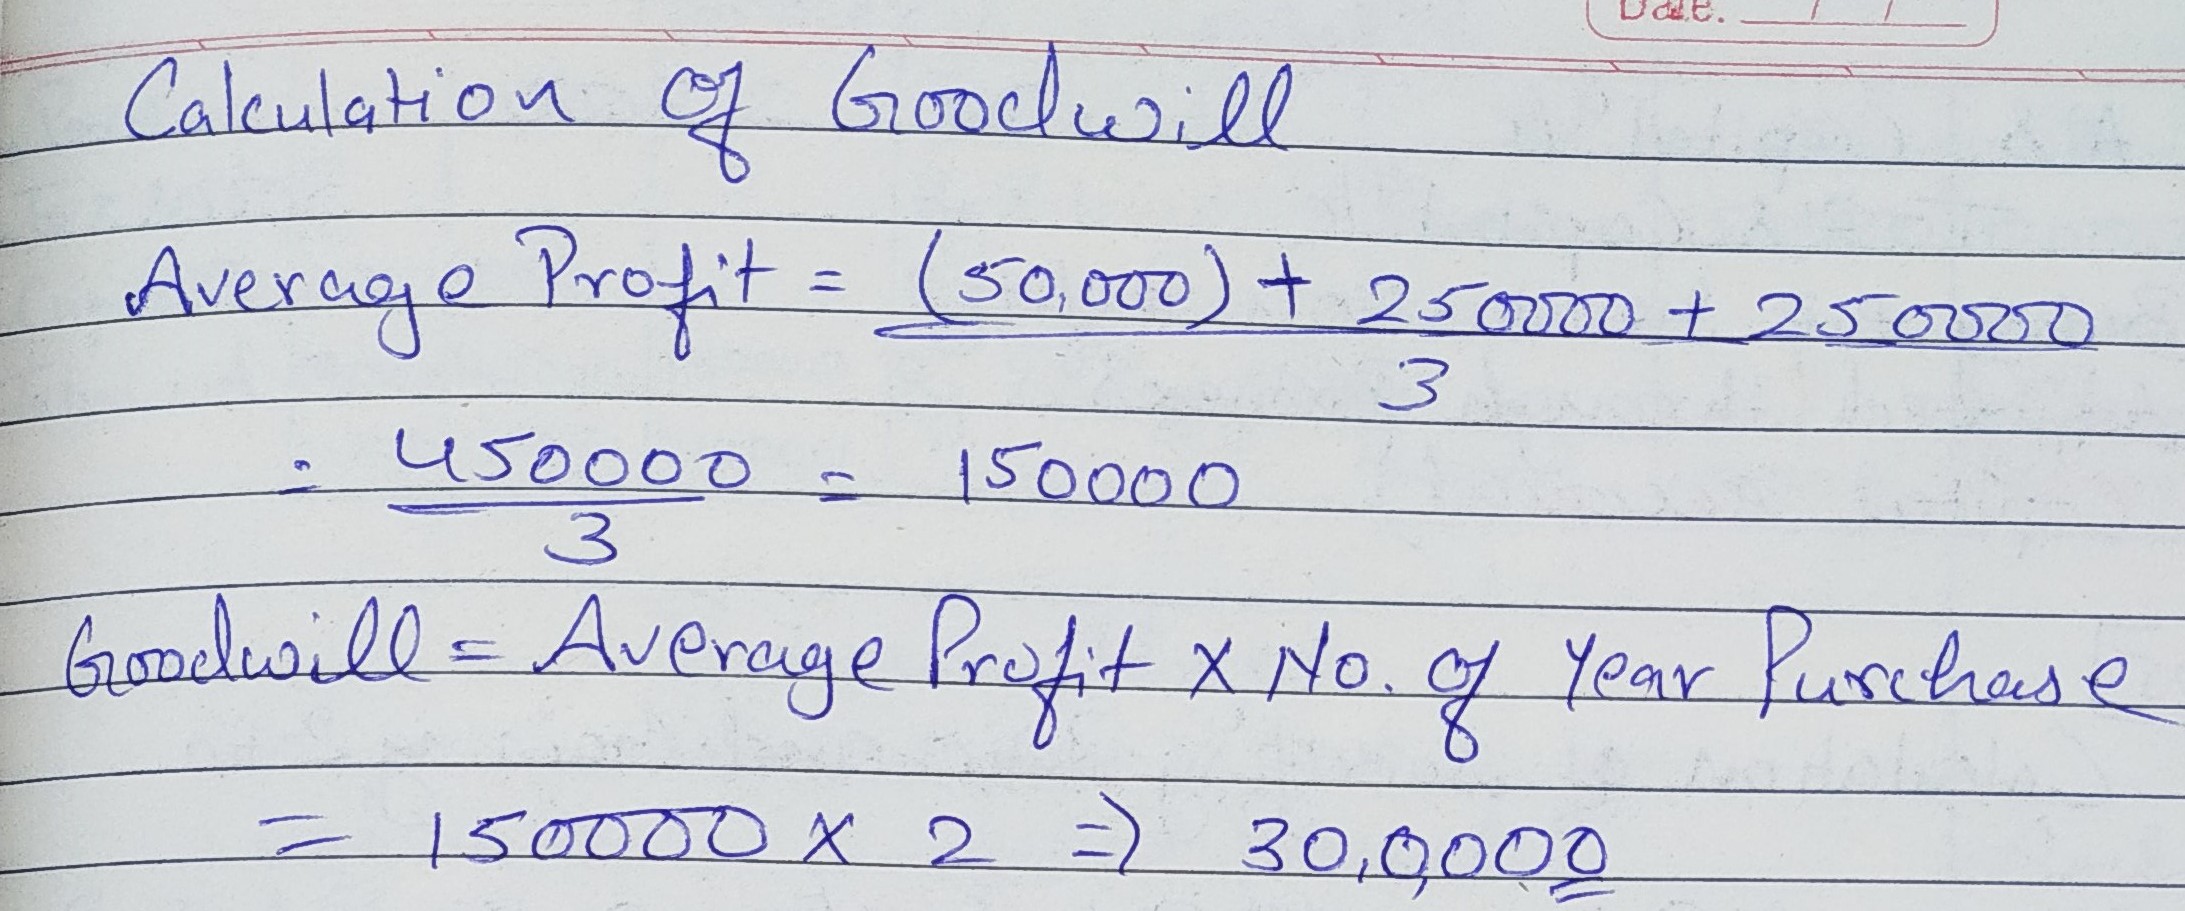 Date. / /
Calculation of Goodwill
Average Profit = (50,000) + 250000 + 250000
3
= 450000 = 150000
3
Goodwill = Average Profit x No. of Year Purchase
= 150000 x 2 => 30,0,000